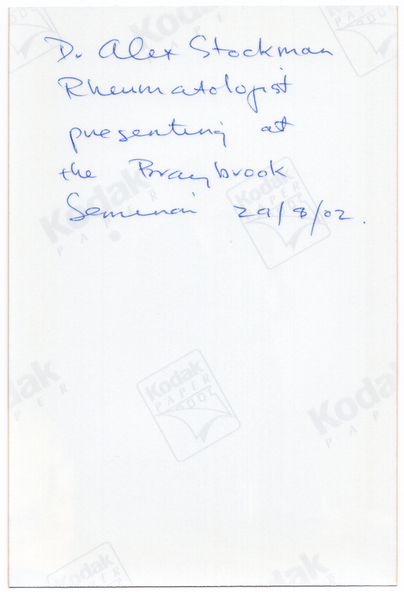 Dr Alex Stockman
Rheumatologist
presenting at
the Braybrook
Seminar 29/8/02.
Kodak
PAPER
Kodak
PAPER
Kodak
PAPER
Kodak
PAPER
Kodak
PAPER
Kodak
Kodak